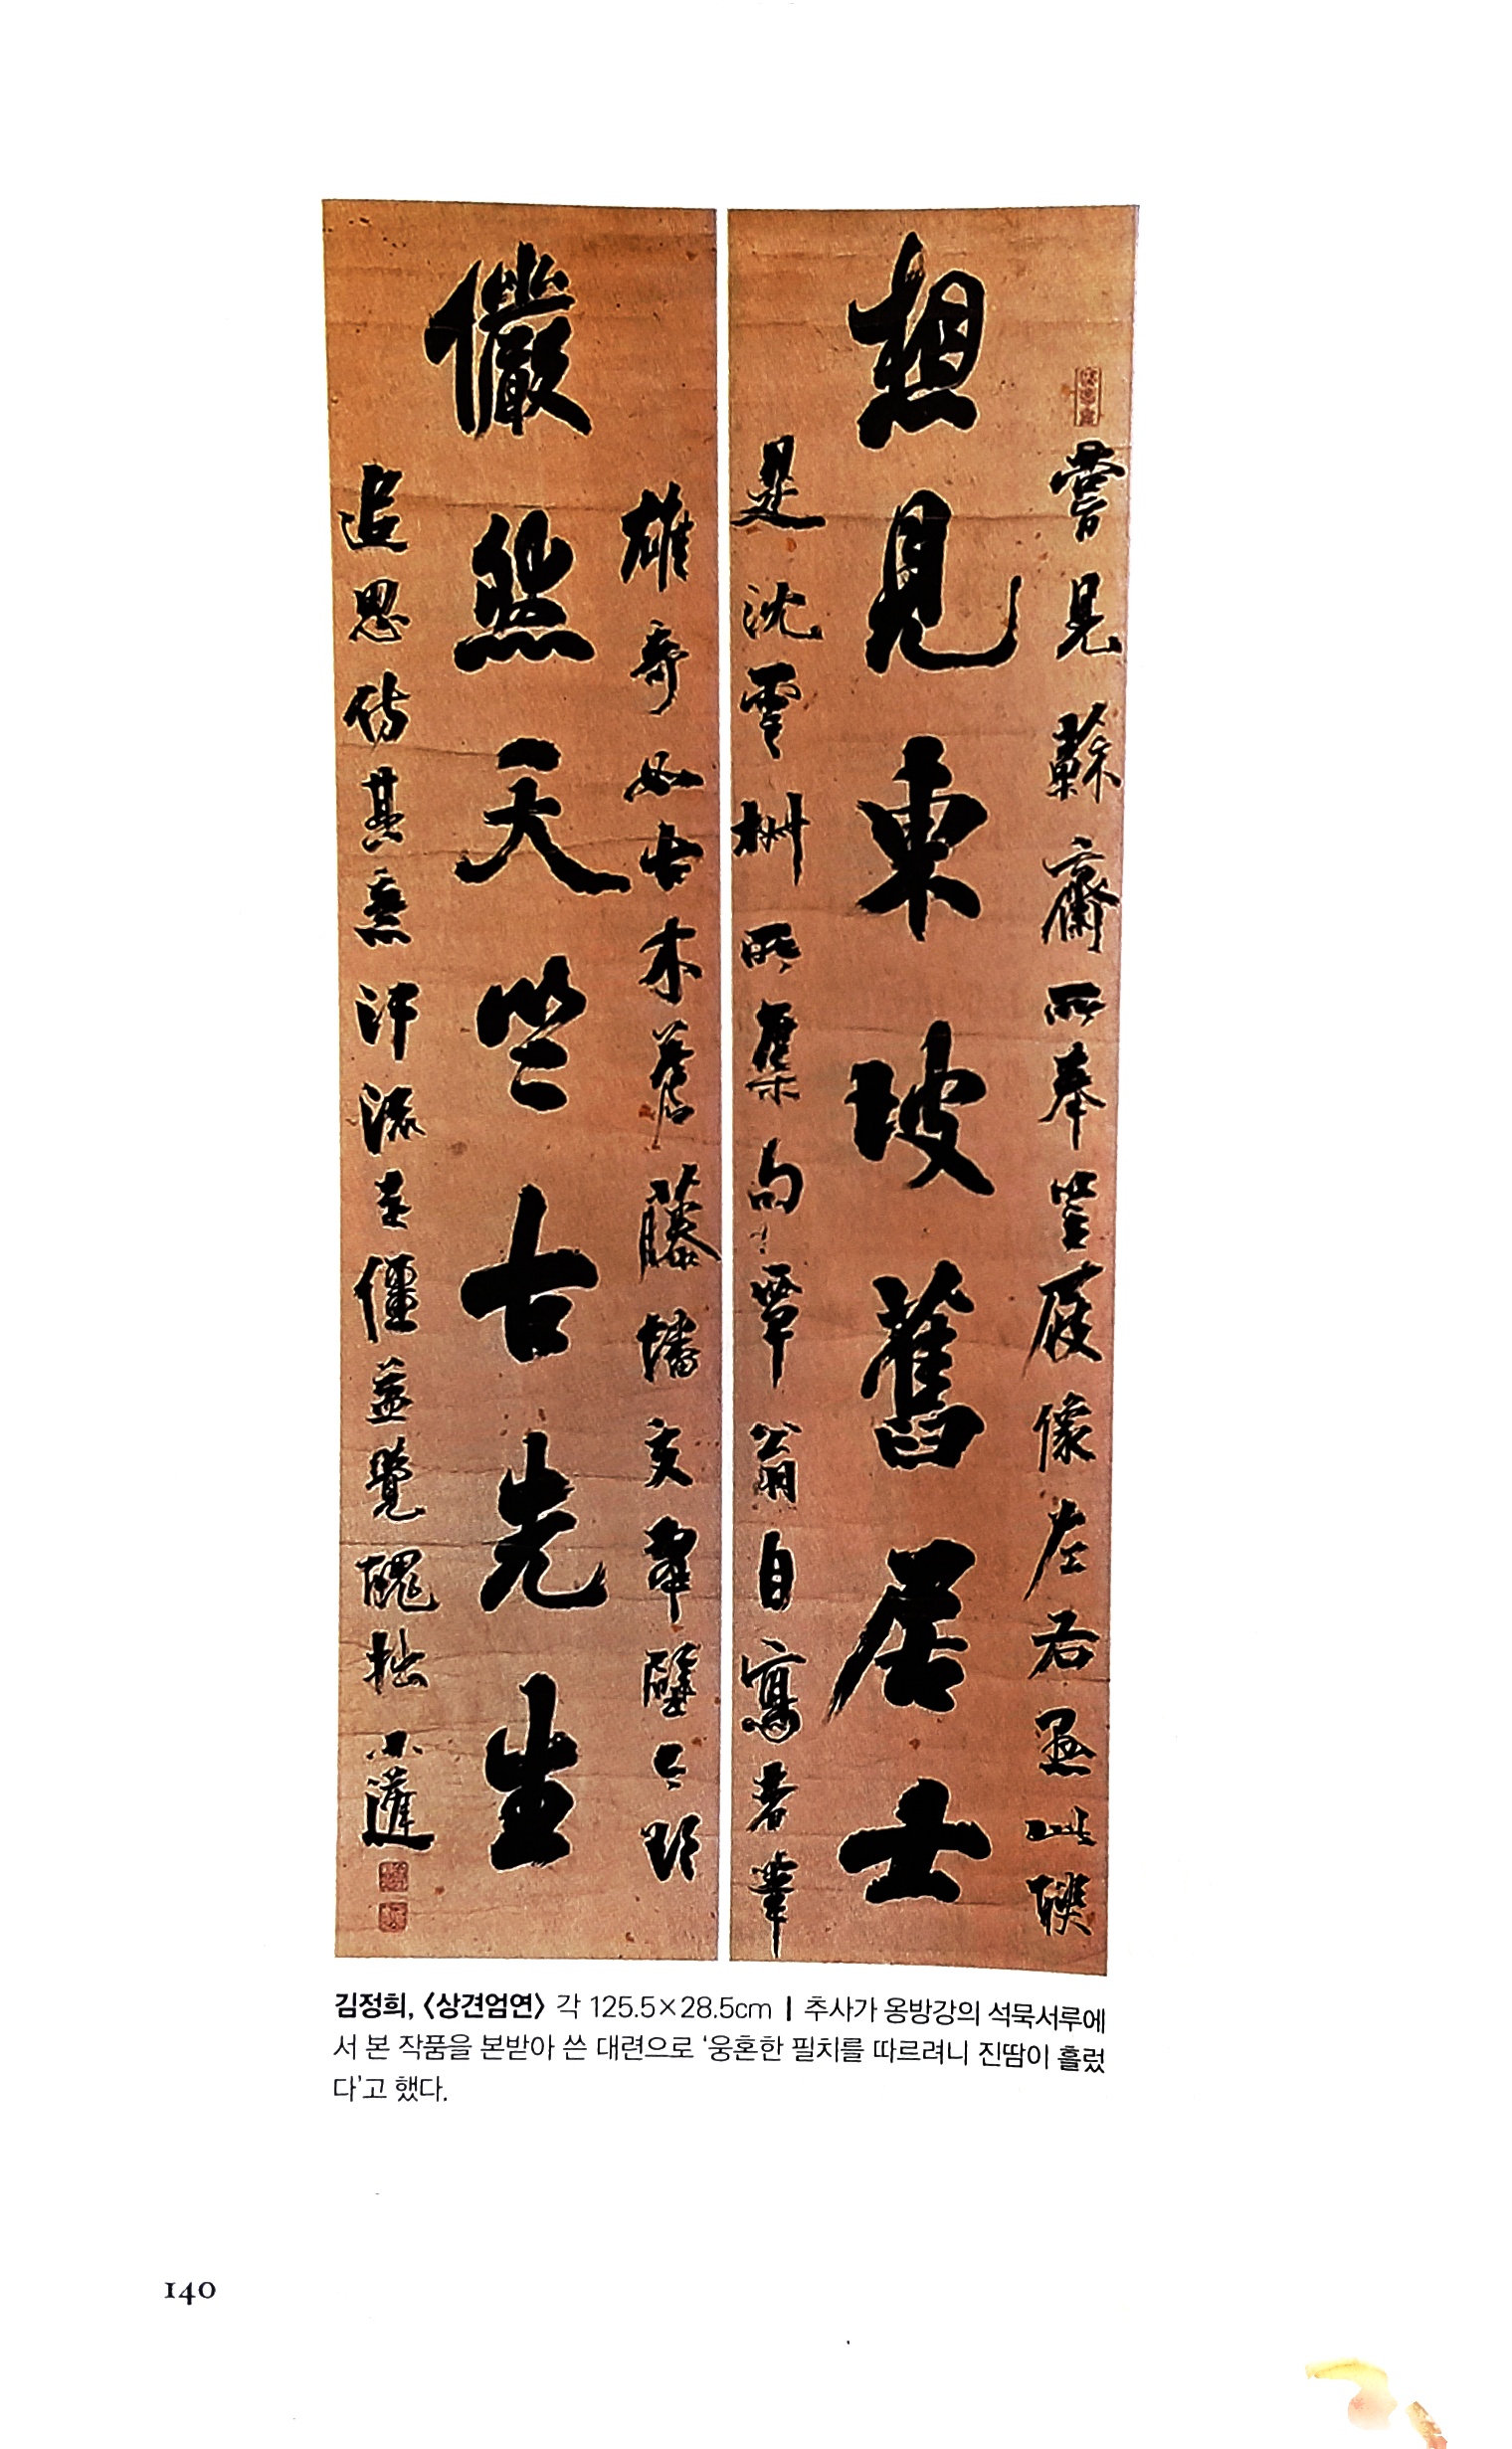 嘗見蘇齋所奉笠屐像左右此聯
想見東坡舊居士
是沈雲所集句覃翁自寫者筆
雄奇如古木蒼藤蟠交壁之間
儼然天竺古先生
追思仿其意汗流走僵益覺醜拙小
김정희, 〈상견엄연〉 각 125.5×28.5cm | 추사가 옹방강의 석묵서루에
서 본 작품을 본받아 쓴 대련으로 ‘웅혼한 필치를 따르려니 진땀이 흘렀
다’고 했다.
140